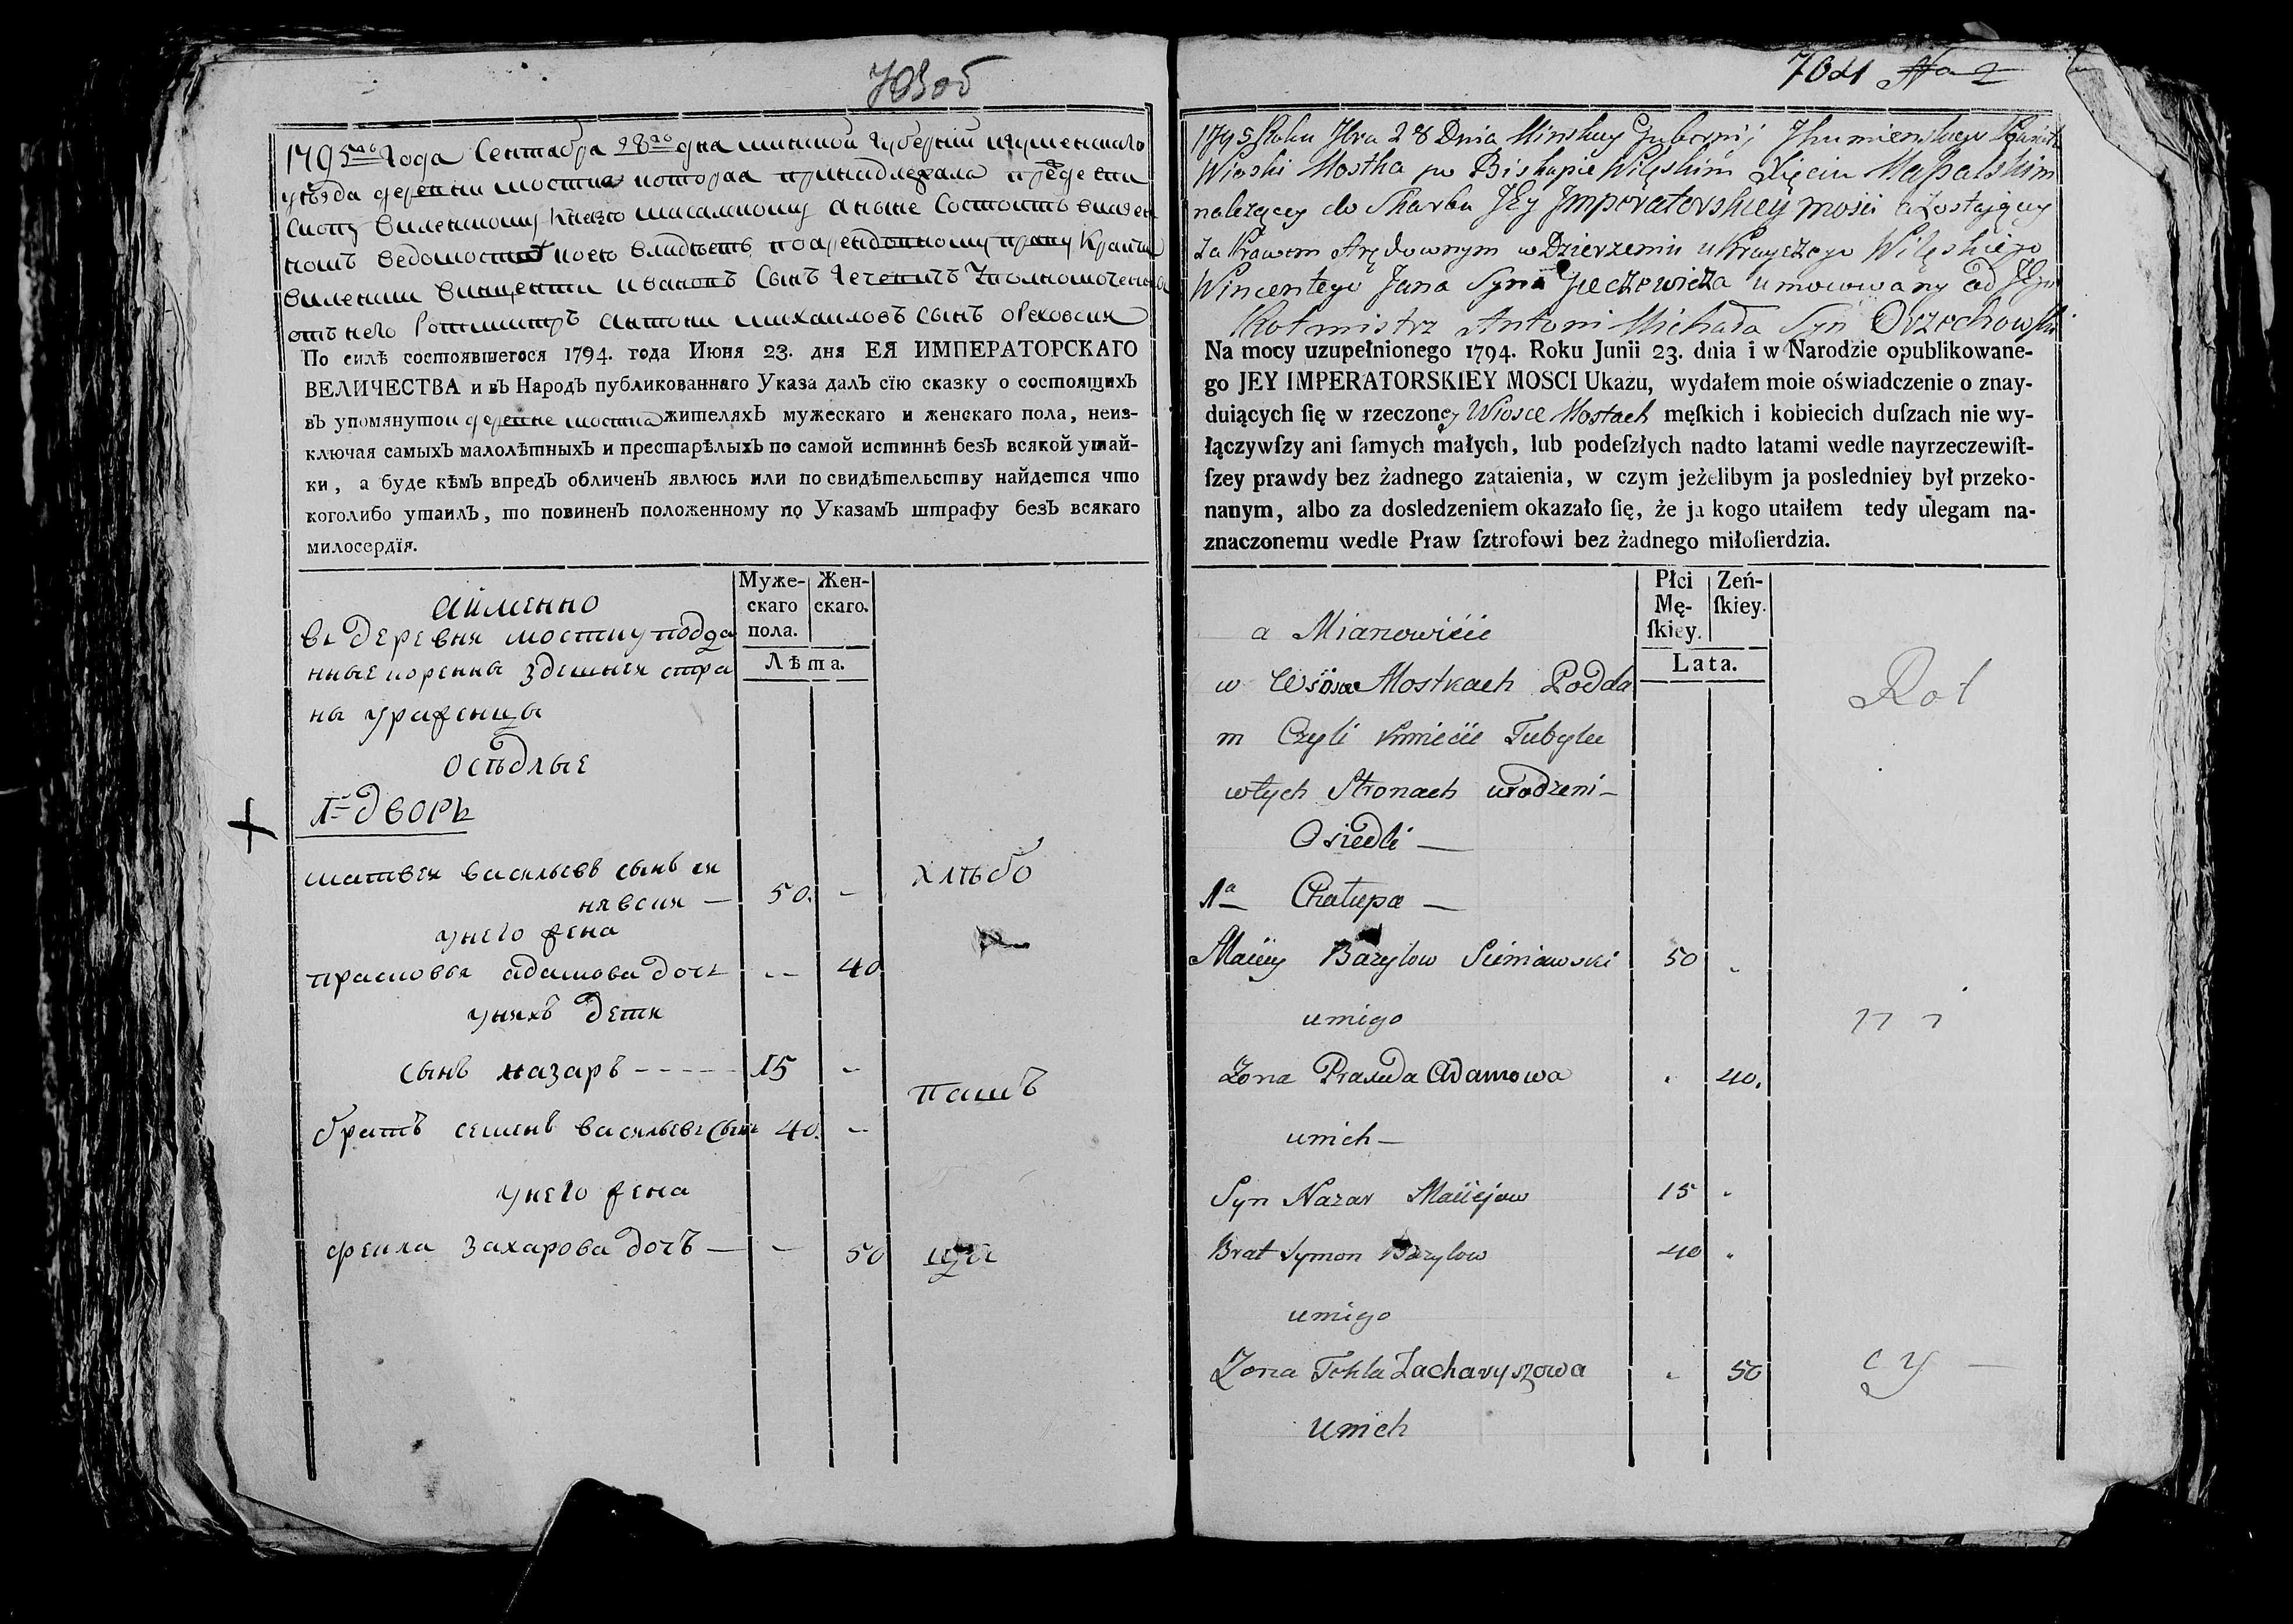 703об
1795го года Сентабра 28го дна минской губернїи игуменского
уѣзда деревни мостка которая принадлежала преде епи
скопу виленшому князю масалскому аныне Состоитъ вказен
номъ ведомостве коею владѣетъ поарендовному праву Крайчи
виленски винценти ивановъ Сынъ Гечевичъ Уполномоченой
отъ него Ротмистръ Антони михаиловъ сынъ ореховски
По силѣ состоявшегося 1794. года Июня 23. дня ЕЯ ИМПЕРАТОРСКАГО
ВЕЛИЧЕСТВА и въ Народъ публикованнаго Указа далъ сїю сказку о состоящихъ
въ упомянутои деревне мостка жителяхъ мужескаго и женскаго пола, неиз-
ключая самыхъ малолѣтныхъ и престарѣлыхъ по самой истиннѣ безъ всякой утай-
ки, а буде кѣмъ впредъ обличенъ явлюсь или по свидѣтельству найдется что
коголибо утаилъ, то повиненъ положенному по Указамъ штрафу безъ всякаго
милосердїя.
Муже-
скаго
пола.
Жен-
скаго.
Лѣта.
Аименно
въ деревня мостку подда
нные коренны здешнея стра
ны ураженцы
осѣдлые
1й дворъ
матвея васильевъ сынъ ся
нявския — 50. -
унего жена
прасковья адамова дочь -- 40
унихъ дети
сынъ назаръ - - - - - 15 -
братъ семенъ васильевъ сынъ 40. -
унего жена
фекла захарова дочъ — - 50
хлѣбо
пашъ
цы
7041 No 2
1795 Roku 7bra 28 Dnia Minskiey Gubernij Jhumienskiego Powiatu
Wioski Mostka po Biskupie Wileskim Xięciu Massalskim
należącey do Skarbu JEy Jmperatorskiey mości a Zostaiącey
za Prawem Arędownym w Dzierżeniu u Krayczego Wileskiego
Wincentego Jana Syna Jieczewicza umocowany od JEgo
Rotmistrz Antoni Michała Syn Orzechowski
Na mocy uzupełnionego 1794. Roku Junii 23. dnia i w Narodzie opublikowane-
go JEY IMPERATORSKIEY MOSCI Ukazu, wydałem moie oświadczenie o znay-
duiących ſię w rzeczoney Wiosce Mostach męſkich i kobiecich duſzach nie wy-
łączywſzy ani ſamych małych, lub podeſzłych nadto latami wedle nayrzeczewiſt-
ſzey prawdy bez żadnego zataienia, w czym jeżelibym ja posledniey był przeko-
nanym, albo za dosledzeniem okazało ſię, że ja kogo utaiłem tedy ulegam na-
znaczonemu wedle Praw ſztrofowi bez żadnego miłoſierdzia.
Płci
Mę-
ſkiey.
Zeń-
ſkiey.
Lata.
a Mianowicie
w Wiosce Mostkach Podda
m Czyli kmiecie Tubylce
wtych Stronach urodzeni —
Osiedli —
1a Chałupa —
Maciey Bazylow Sieniawski 50 .
umigo
Zona Praxeda Adamowa . 40.
unich —
Syn Nazar Maciejow 15 .
Brat Symon Bazylow 40 .
umigo
Zona Tekla Zacharyszowa . 50
Unich
Rol
ni
cy —